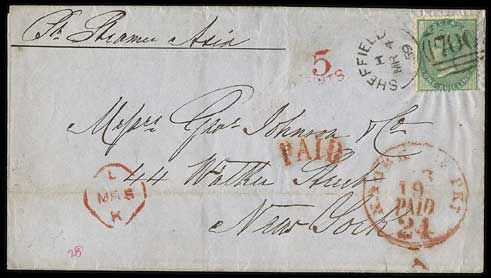 Pr. Steamer Asia
5
CENTS
SHEFFIELD
H
MR 4
59
700
Messrs Geo. Johnson & Co
PAID
44 Walker Street
New York
L
MR 5
K
19
PAID
24
28